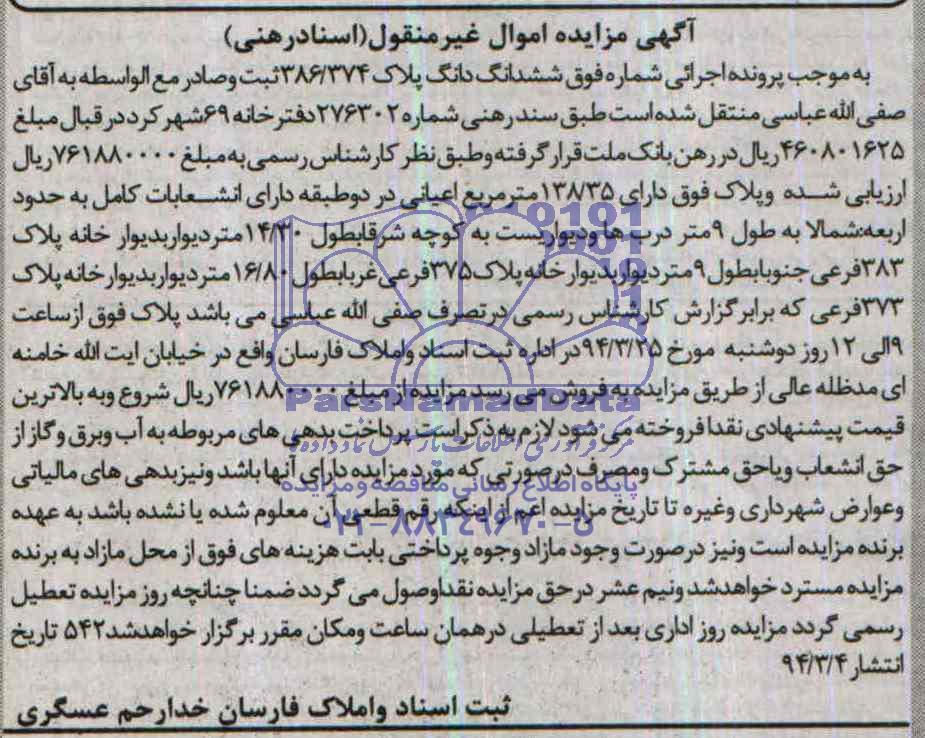 آگهی مزایده اموال غیرمنقول(اسنادرهنی)
به موجب پرونده اجرائی شماره فوق ششدانگ دانگ پلاک ۳۸۶/۳۷۴ ثبت وصادر مع الواسطه به آقای
صفی الله عباسی منتقل شده است طبق سند رهنی شماره ۲۷۶۳۰۲ دفترخانه ۶۹ شهرکرد در قبال مبلغ
۴۶۰۸۰۱۶۲۵ ریال در رهن بانک ملت قرار گرفته وطبق نظر کارشناس رسمی به مبلغ ۷۶۱۸۸۰۰۰۰ ریال
ارزیابی شده وپلاک فوق دارای ۱۳۸/۳۵ مترمربع اعیانی در دوطبقه دارای انشعابات کامل به حدود
اربعه:شمالا به طول ۹ متر درب ها ودیواریست به کوچه شرقابطول ۱۴/۳۰ متردیواربدیوار خانه پلاک
۳۸۳ فرعی جنوبابطول ۹ متردیواربدیوار خانه پلاک ۳۷۵ فرعی غربابطول ۱۶/۸۰ متردیواربدیوارخانه پلاک
۳۷۳ فرعی که برابر گزارش کارشناس رسمی درتصرف صفی الله عباسی می باشد پلاک فوق از ساعت
۹ الی ۱۲ روز دوشنبه مورخ ۹۴/۳/۲۵ در اداره ثبت اسناد واملاک فارسان واقع در خیابان ایت الله خامنه
ای مدظله عالی از طریق مزایده به فروش می رسد مزایده از مبلغ ۷۶۱۸۸۰۰۰۰ ریال شروع وبه بالاترین
قیمت پیشنهادی نقدا فروخته می شود لازم به ذکر است پرداخت بدهی های مربوطه به آب وبرق وگاز از
حق انشعاب ویاحق مشترک ومصرف درصورتی که مورد مزایده دارای آنها باشد ونیزبدهی های مالیاتی
وعوارض شهرداری وغیره تا تاریخ مزایده اعم از اینکه رقم قطعی آن معلوم شده یا نشده باشد به عهده
برنده مزایده است ونیز درصورت وجود مازاد وجوه پرداختی بابت هزینه های فوق از محل مازاد به برنده
مزایده مسترد خواهدشد ونیم عشر در حق مزایده نقداوصول می گردد ضمنا چنانچه روز مزایده تعطیل
رسمی گردد مزایده روز اداری بعد از تعطیلی درهمان ساعت ومکان مقرر برگزار خواهدشد ۵۴۲ تاریخ
انتشار ۹۴/۳/۴
ثبت اسناد واملاک فارسان خدارحم عسگری
ParsNamadData
پایگاه اطلاع رسانی مناقصه ومزایده
۰۲۱-۸۸۳۴۹۶۷۰-۵